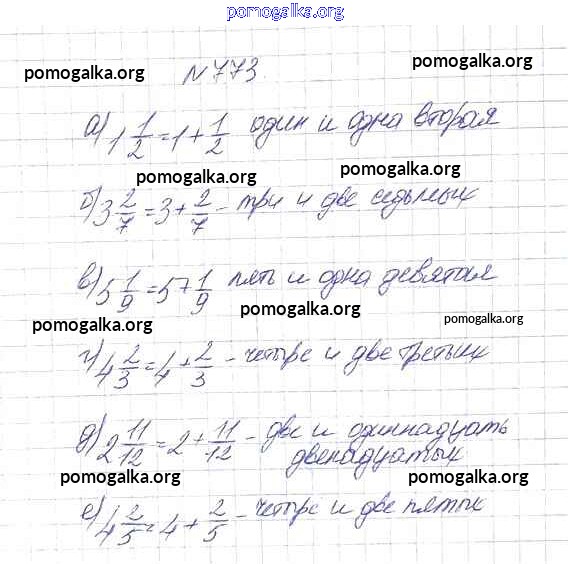 pomogalka.org
pomogalka.org
pomogalka.org
N 773.
а) 1 1/2 = 1 + 1/2 один и одна вторая
pomogalka.org pomogalka.org
б) 3 2/7 = 3 + 2/7 - три и две седьмых
в) 5 1/9 = 5 + 1/9 пять и одна девятая
pomogalka.org pomogalka.org pomogalka.org
г) 4 2/3 = 4 + 2/3 - четыре и две третьих
pomogalka.org pomogalka.org
д) 2 11/12 = 2 + 11/12 - две и одиннадцать
двенадцатых
pomogalka.org pomogalka.org
е) 4 2/5 = 4 + 2/5 - четыре и две пятых